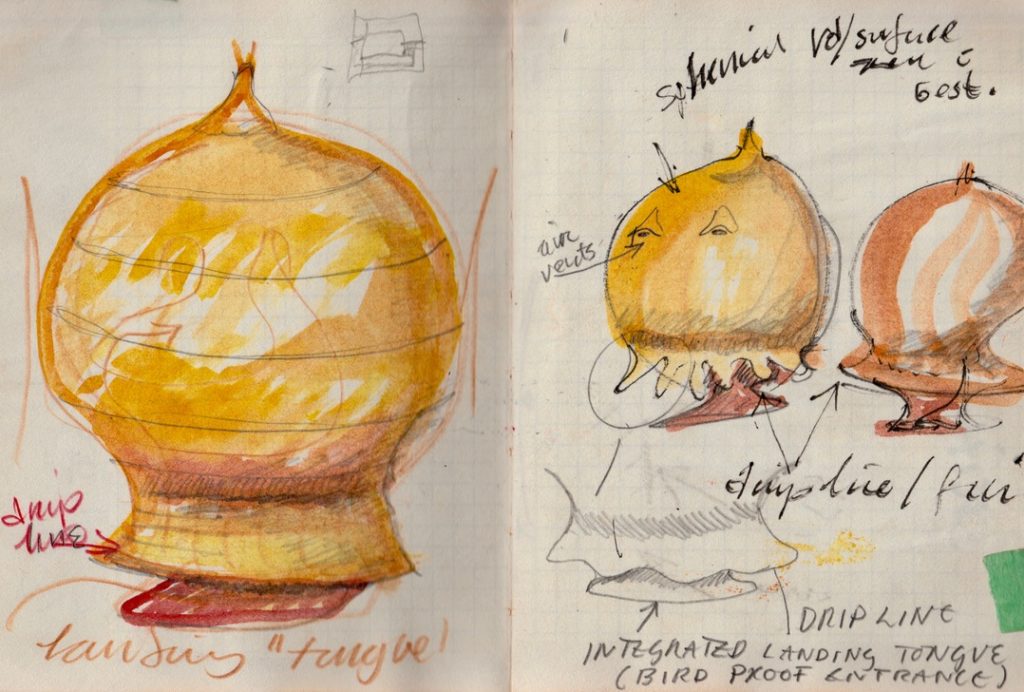 drip
line
landing "tongue"
spherical vd/surface
c
best.
air
vents
dripline/
DRIP LINE
INTEGRATED LANDING TONGUE
(BIRD PROOF ENTRANCE)